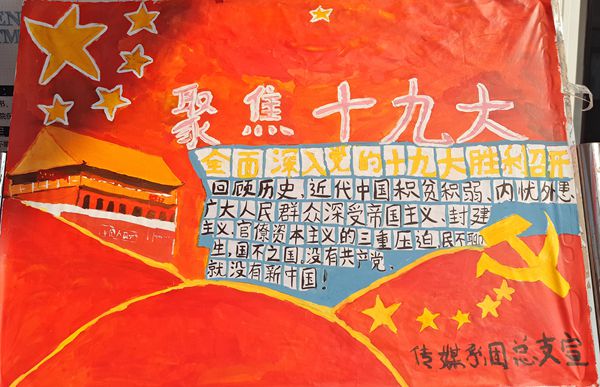 聚焦十九大
全面深入党的十九大胜利召开
回顾历史,近代中国积贫积弱、内忧外患
广大人民群众深受帝国主义、封建
主义,官僚资本主义的三重压迫,民不聊
生,国不之国,没有共产党、
就没有新中国!
传媒 团总支宣